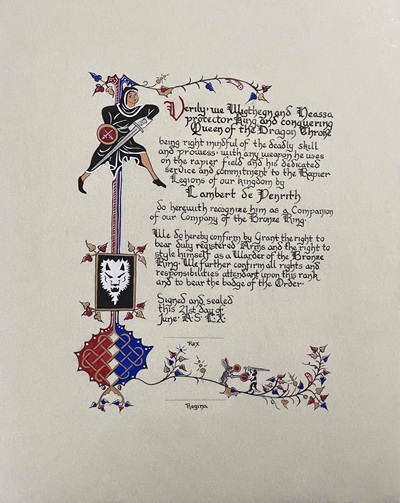 Verily we Wigthegn and Neassa
protector King and conquering
Queen of the Dragon Throne
being right mindful of the deadly skill
and prowess with any weapon he uses
on the rapier field and his dedicated
service and commitment to the Rapier
Legions of our kingdom by
Lambert de Penrith
do herewith recognize him as a Companion
of our Company of the Bronze Ring.
We do hereby confirm by Grant the right to
bear duly registered Arms and the right to
style himself as a Warder of the Bronze
Ring. We further confirm all rights and
responsibilities attendant upon this rank
and to bear the badge of the Order.
Signed and sealed
this 21st day of
June A.S. LX.
Rex
Regina